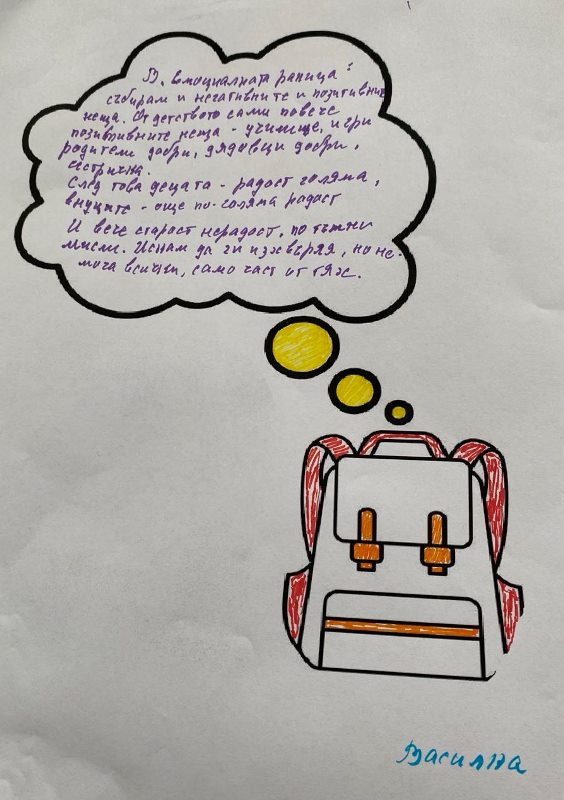 В „емоционалната раница“
събирам и негативните и позитивните
неща. От детството сами повече
позитивните неща - училище, игри
родители добри, дядовци добри,
сестричка.
След това децата - радост голяма,
внуците - още по-голяма радост
И вече старост нерадост, по тъжни
мисли. Искам да ги изхвърля, но не
мога всички, само част от тях.
Василка